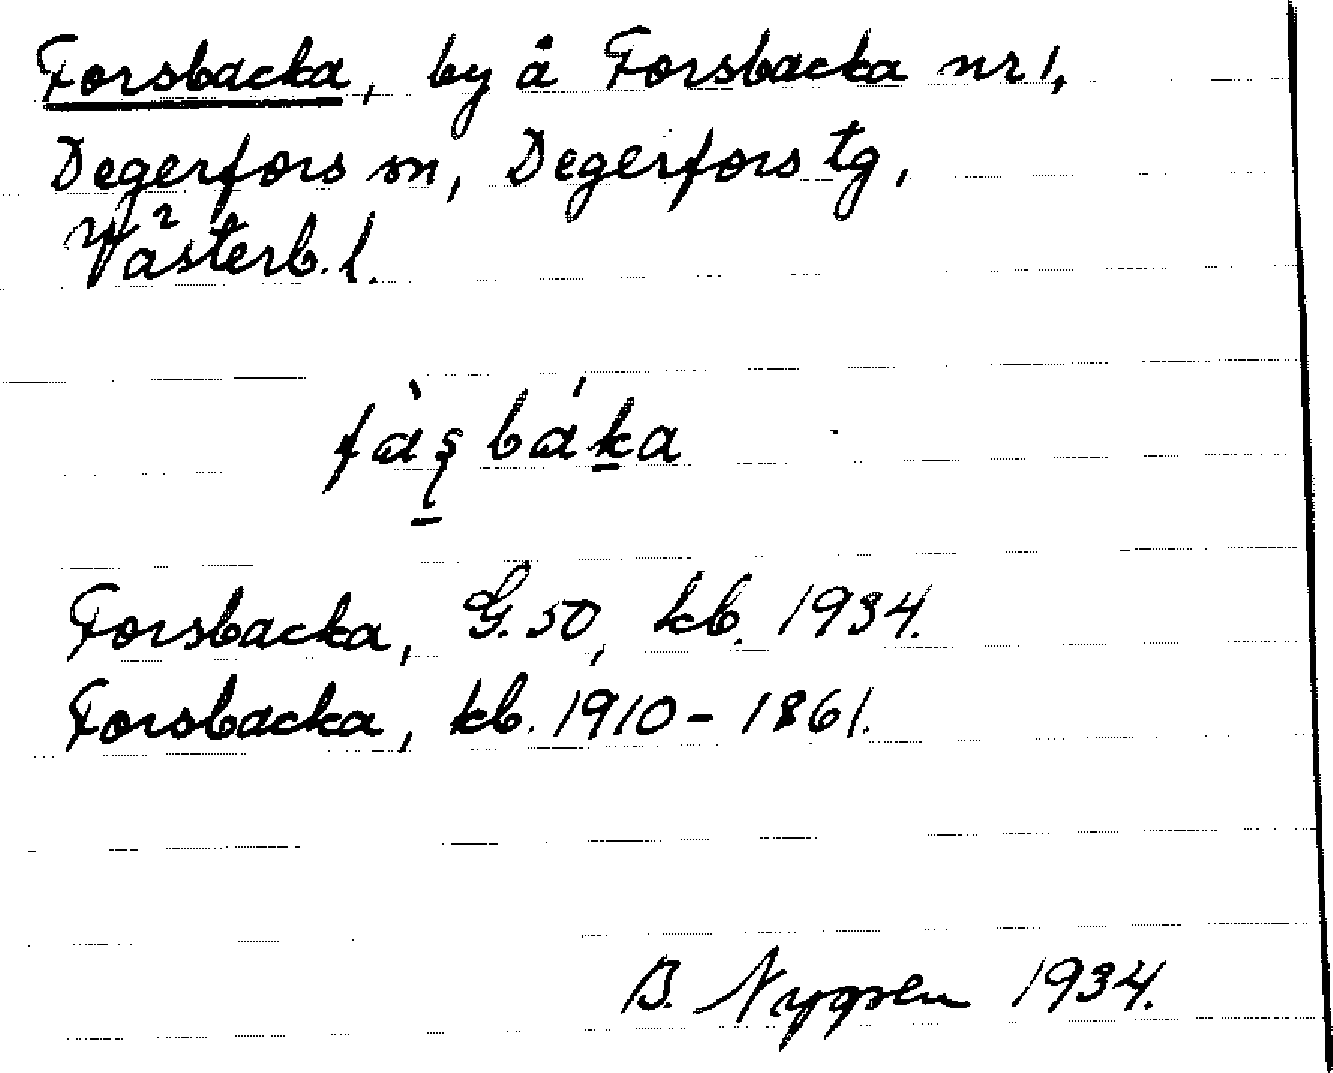 Forsbacka, by å Forsbacka nr 1,
Degerfors sn, Degerfors tg,
Västerb. l.
Forsbacka, G. 50, kb. 1934.
Forsbacka, kb. 1910 - 1861.
B. 1934.